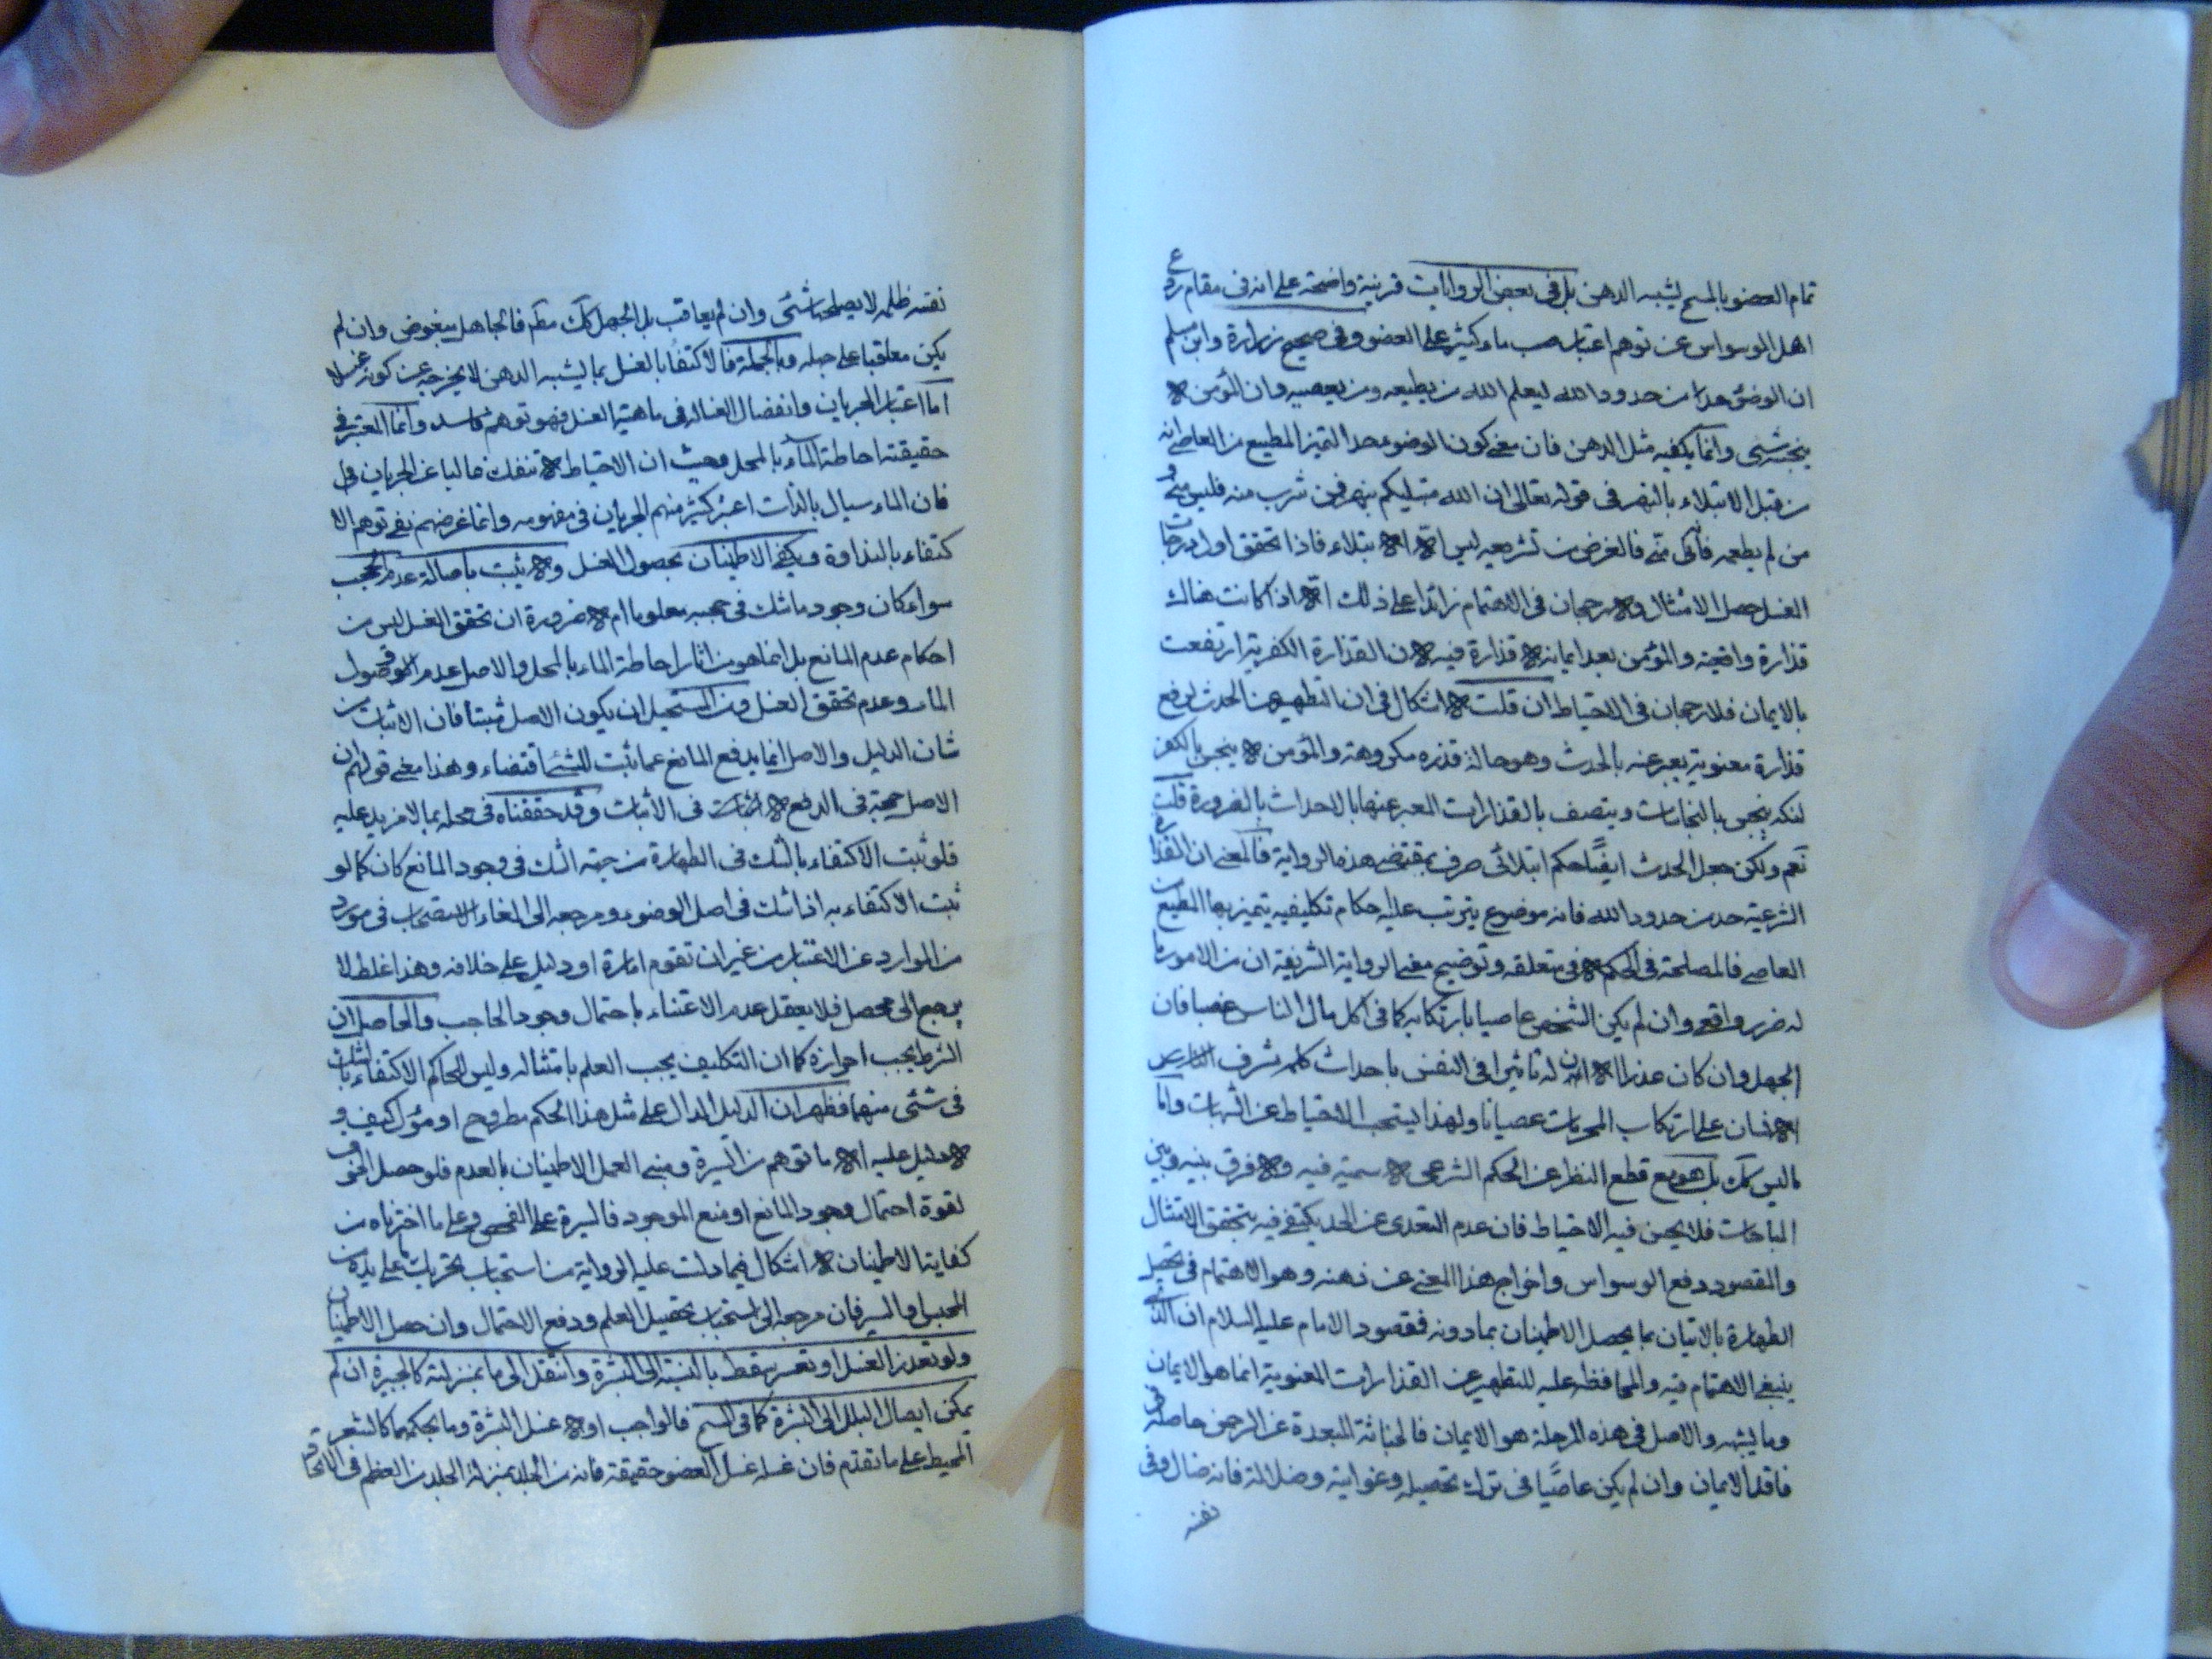 تمام العضو بالمسح يشبه الدهن بل في بعض الروايات قرينة واضحة على انه في مقام ردع
اهل الوسواس عن توهم اعتبار صب ماء كثير على العضو وفي صحيح زرارة وابن مسلم
ان الوضوء حد من حدود الله ليعلم الله من يطيعه ومن يعصيه وان المؤمن لا
ينجسه شيء وانما يكفيه مثل الدهن فان معنى كون الوضوء حدا لتميز المطيع من العاصي انه
من قبيل الابتلاء بالنهر في قوله تعالى ان الله مبتليكم بنهر فمن شرب منه فليس مني و
من لم يطعمه فانه منى فالغرض من تشريعه ليس الا الابتلاء فاذا تحقق اول درجات
الغسل حصل الامتثال ولا رجحان في الاهتمام زائدا على ذلك الا اذا كانت هناك
قذارة واقعية والمؤمن بعد ايمانه لا قذارة فيه لان القذارة الكفرية ارتفعت
بالايمان فلا رجحان في الاحتياط ان قلت لا اشكال في ان التطهير من الحدث لرفع
قذارة معنوية يعبر عنه بالحدث وهو حالة قذره مكروهة والمؤمن لا ينجس بالكفر
لنكه ينجس بالنجاسات ويتصف بالقذارات المعبر عنها بالاحداث بالضرورة قلت
نعم ولكن جعل الحدث ايضا حكم ابتلائي صرف بمقتضى هذه الرواية فالمعنى ان القذارة
الشرعية حد من حدود الله فانه موضوع يترتب عليه احكام تكليفيه يتميز بها المطيع من
العاصي فالمصلحة في الحكم لا في متعلقه وتوضيح معنى الرواية الشريفة ان من الامور ما
له ضرر واقعي وان لم يكن الشخص عاصيا بارتكابه كما في اكل مال الناس غصبا فان
الجهل وان كان عذرا الا ان له تاثيرا في النفس باحداث كلمه تشرف
الانسان على ارتكاب المحرمات عصيانا ولهذا يستحب الاحتياط عن الشبهات واما
ما ليس كك بل هو مع قطع النظر عن الحكم الشرعي لا سمية فيه ولا فرق بينه وبين
المباحات فلا يحسن فيه الاحتياط فان عدم التعدي عن الحد يكتفى فيه بتحقق الامتثال
والمقصود دفع الوسواس واخراج هذا المعنى عن ذهنه وهو الاهتمام في تحصيل
الطهارة بالاتيان بما يحصل الاطمينان بما دونه فمقصود الامام عليه السلام ان الذي
ينبغي الاهتمام فيه والمحافظة عليه للتطهير عن القذارات المعنوية انما هو الايمان
وما يشبهه والاصل في هذه المرحلة هو الايمان فالخباثة المبعدة عن الرحمن حاصلة في
فاقد الايمان وان لم يكن عاصيا في ترك تحصيله وغوايته وضلالة فانه ضال وفي
نفسه
نفسه ظلمه لا يصلحها شئ وان لم يعاقب بل الجهل كك مظم فالجاهل مبغوض وان لم
يكن معاقبا على جهله وبالجملة فالاكتفاء بالغسل بما يشبه الدهن لا يخرجه عن كونه غسلا
اما اعتبار الجريان وانفصال الغسالة في ماهية الغسل فهو توهم فاسد وانما المعتبر في
حقيقته احاطة الماء بالمحل وحيث ان الاحتياط لا تنفك غالبا عن الجريان في
فان الماء سيال بالذات اعتبر كثير منهم الجريان في مفهومه وانما غرضهم نفي توهم الا
كتفاء بالنداوة ويكفي الاطمينان بحصول الغسل ولا يثبت باصالة عدم الحجب
سواء كان وجود ما شك في حجبه معلوما ام لا ضرورة ان تحقق الغسل ليس من
احكام عدم المانع بل انما هو من اثار احاطة الماء بالمحل والاصل عدم وصول
الماء وعدم تحقق الغسل ومن المستحيل ان يكون الاصل مثبتا فان الاثبات من
شان الدليل والاصل انما يدفع المانع عما ثبت للشئ اقتضاء وهذا معنى قولهم ان
الاصل حجة في الدفع لا في الاثبات وقد حققناه في محله بما لا مزيد عليه
فلو ثبت الاكتفاء بالشك في الطهارة من جهة الشك في وجود المانع كان كما لو
ثبت الاكتفاء به اذا شك في اصل الوضوء ومرجعه الى الغاء الاستصحاب في مورد
من الموارد عن الاعتبار من غير ان تقوم امارة او دليل على خلافه وهذا غلط لا
يرجع الى محصل فلا يعقل عدم الاعتناء باحتمال وجود الحاجب والحاصل ان
الشرط يجب احرازه كما ان التكليف يجب العلم بامتثاله وليس للحاكم الاكتفاء بالشك
في شئ منهما فظهر ان الدليل الدال على مثل هذا الحكم مطروح او مؤول كيف و
لا دليل عليه الا ما توهم من السيرة ومبنى العمل الاطمينان بالعدم فلو حصل الخوف
لقوة احتمال وجود المانع او منع الموجود فالسيرة على الفحص وعلى ما اخترناه من
كفاية الاطمينان لا اشكال فيما دلت عليه الرواية من استحباب على يده من
المحبس او السير فان مرجعه الى استحباب تحصيل العلم ودفع الاحتمال وان حصل الاطمينان
ولو تعذر الغسل او تعسر سقط بالنسبة الى البشرة وانتقل الى ما بمنزلته كالجبيرة ان لم
يمكن ايصال البلل الى البشرة كما في المسح فالواجب اولا غسل البشرة وما بحكمها كالشعر
المحيط على ما تقدم فان غسله غسل العضو حقيقة فانه من الجلد بمنزلة الجلد من العظم في الاتحاد